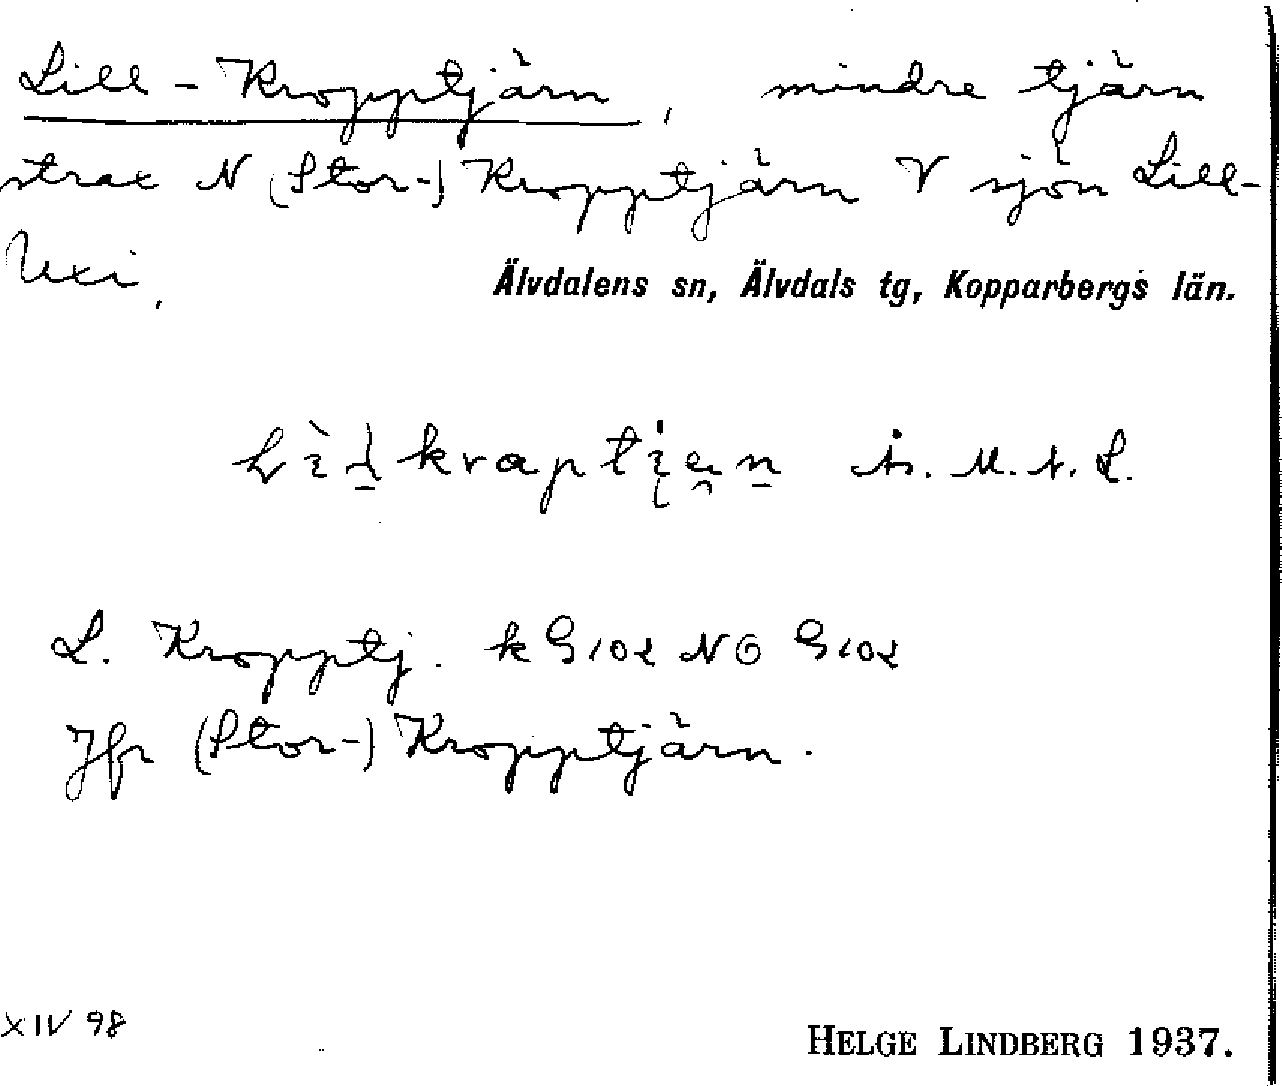 Lill-Kropptjärn, mindre tjärn
strax N (Stor-) Kropptjärn V sjön Lill-
Uxi.
Älvdalens sn, Älvdals tg, Kopparbergs län.
M. N. L.
L. Kropptj. k G102 NO G102
Jfr (Stor-) Kropptjärn.
XIV 98
HELGE LINDBERG 1937.